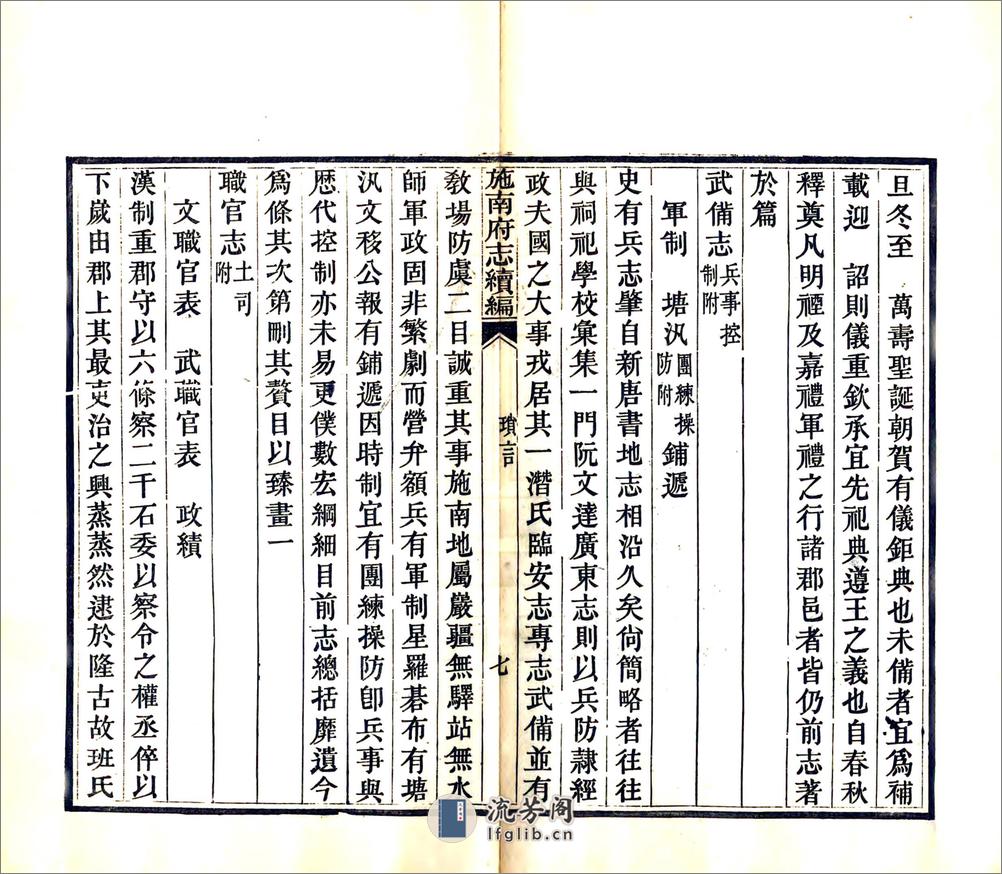 旦冬至　萬壽聖誕朝賀有儀鉅典也未備者宜爲補
載迎　詔則儀重欽承宜先祀典遵王之義也自春秋
釋奠凡明禋及嘉禮軍禮之行諸郡邑者皆仍前志著
於篇
武備志兵事控制附
軍制　塘汛團練操防附　鋪遞
史有兵志肇自新唐書地志相沿久矣尙簡略者往往
與祠祀學校彙集一門阮文達廣東志則以兵防隸經
政夫國之大事戎居其一潛氏臨安志專志武備並有
施南府志續編　瑣言　七
敎場防虞二目誠重其事施南地屬嚴疆無驛站無水
師軍政固非繁劇而營弁額兵有軍制星羅碁布有塘
汛文移公報有鋪遞因時制宜有團練操防卽兵事與
歷代控制亦未易更僕數宏綱細目前志總括靡遺今
爲條其次第刪其贅目以臻畫一
職官志土司附
文職官表　武職官表　政績
漢制重郡守以六條察二千石委以察令之權丞倅以
下歲由郡上其最吏治之興蒸蒸然逮於隆古故班氏
流芳阁
lfglib.cn